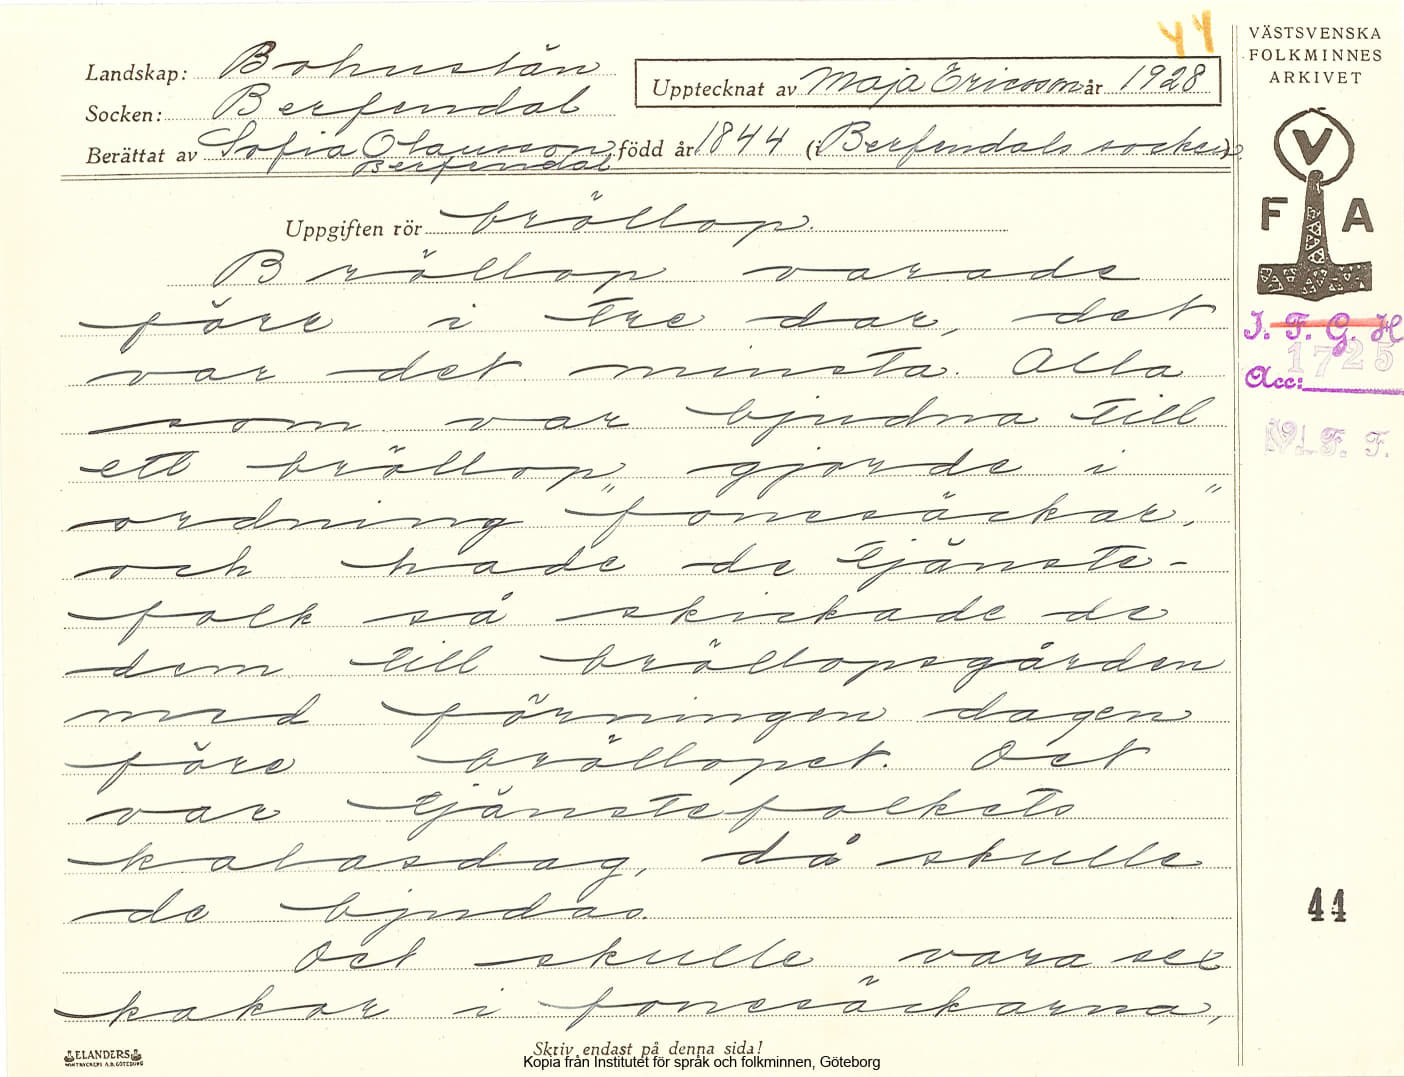 44
VÄSTSVENSKA
FOLKMINNES
ARKIVET
Landskap: Bohuslän
Upptecknat av Maja Ericsson år 1928
Socken: Berfendal
Berättat av Sofia Olausson född år 1844 (i Berfendals socken)
Berfendal
V
F A
Uppgiften rör bröllop.
Bröllop varade
förr i tre dar, det
var det minsta. Alla
som var bjudna till
ett bröllop gjorde i
ordning "fonesäckar",
och hade de tjänste-
folk så skickade de
dem till bröllopsgården
med förningen dagen
före bröllopet. Det
var tjänstefolkets
kalasdag, då skulle
de bjudas.
Det skulle vara sex
kakor i fonesäckarna,
I. F. G. H
1725
Acc:
F. F.
44
ELANDERS
Skriv endast på denna sida!
Kopia från Institutet för språk och folkminnen, Göteborg